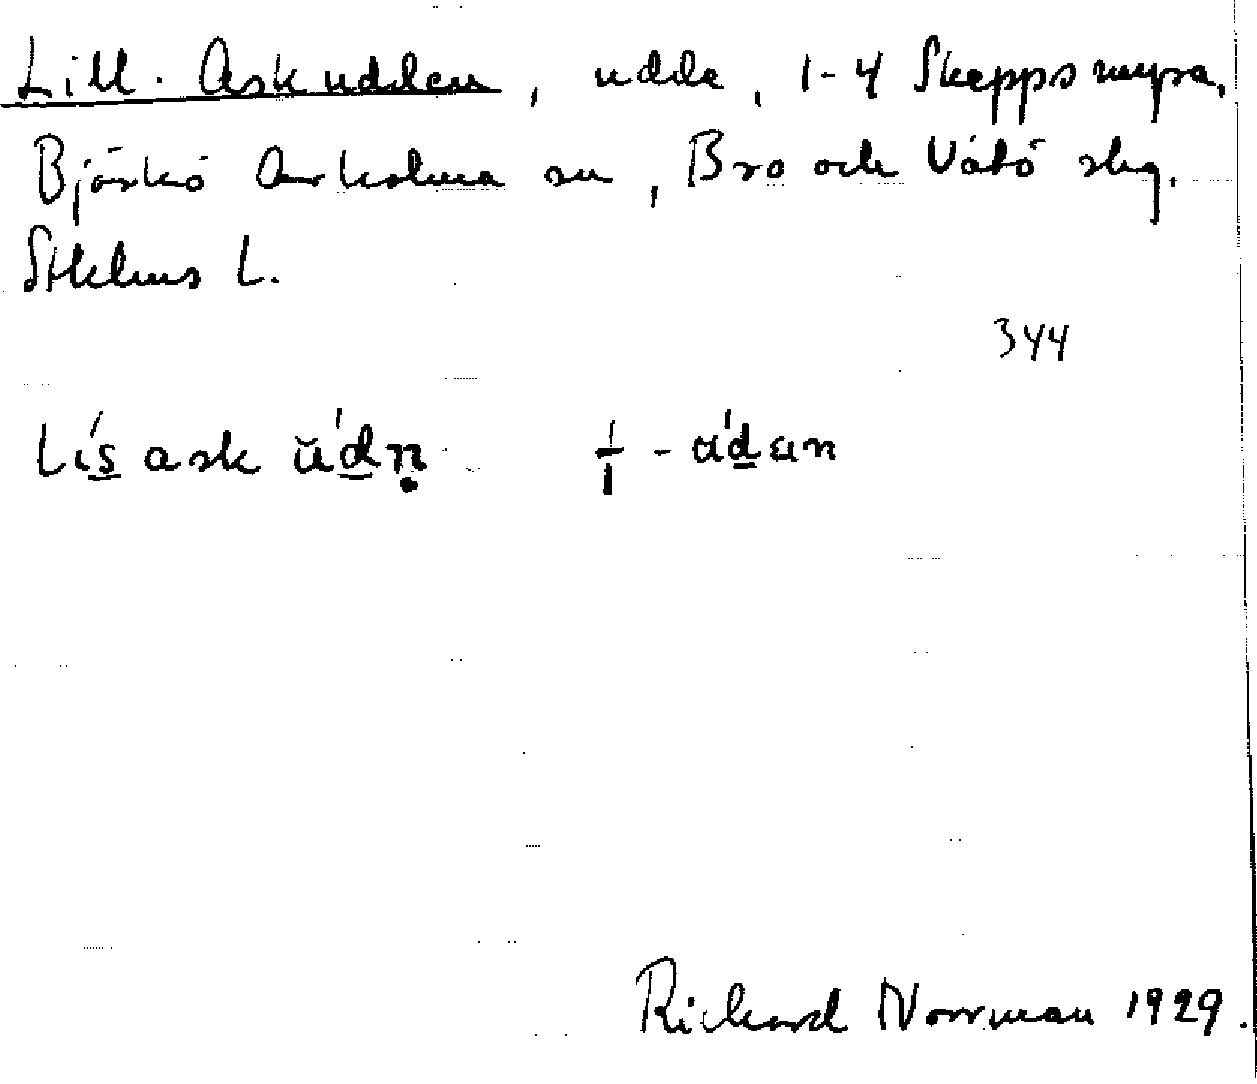 Lill-Askudden, udde, 1-4 Skeppsmyra,
Björkö Arholma sn, Bro och Vätö slg.
Sthlms L.
344
Lísask ŭ́dn ÷ -ŭ́dan
Richard Norrman 1929.